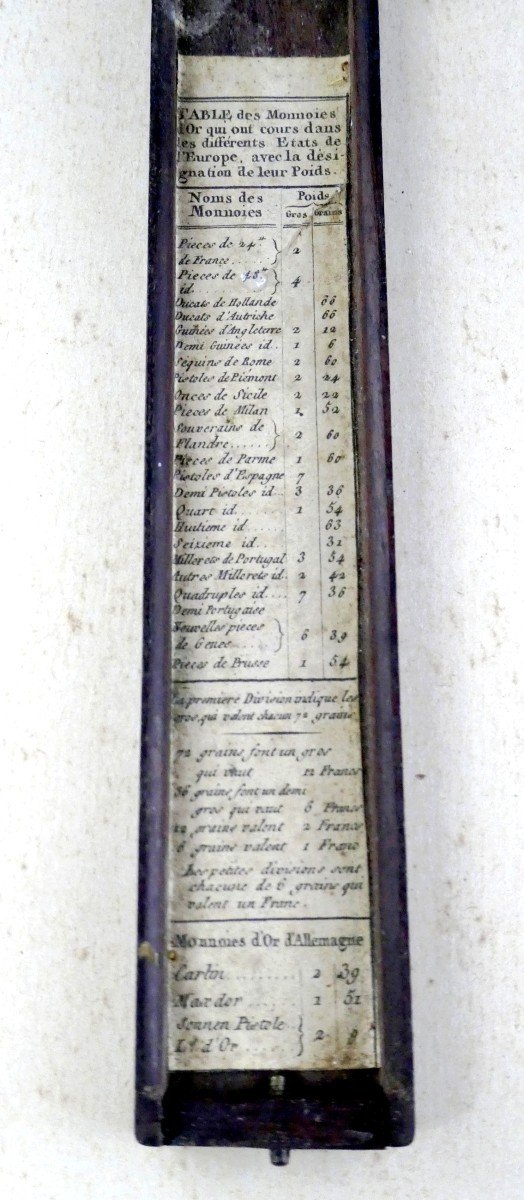 TABLE, des Monnoies
d'Or qui ont cours dans
les différents Etats de
l'Europe, avec la dési-
gnation de leur Poids.
Noms des Monnoies Poids
Gros Grains
Pieces de 24"
de France...... } 2
Pieces de 48"
id............ } 4
Ducats de Hollande 66
Ducats d'Autriche 66
Guinées d'Angleterre 2 12
Demi Guinées id.. 1 6
Séquins de Rome 2 60
Pistoles de Piémont 2 24
Onces de Sicile 2 22
Pieces de Milan 1. 52
Souverains de
Flandre...... } 2 60
Pieces de Parme 1 60
Pistoles d'Espagne 7
Demi Pistoles id.. 3 36
Quart id...... 1 54
Huitieme id..... 63
Seixieme id.... 31
Millerets de Portugal 3 54
Autres Millerets id. 2 42
Quadruples id.... 7 36
Demi Portugaise
Nouvelles pieces
de Genes.... } 6 39
Pieces de Prusse 1 54
La premiere Division indique les
gros, qui valent chacun 72 grains
72 grains font un gros
qui vaut 12 Francs
36 grains font un demi
gros qui vaut 6 Francs
12 grains valent 2 Francs
6 grains valent 1 Franc
Les petites divisions sont
chacune de 6 grains qui
valent un Franc.
Monnoies d'Or d'Allemagne
Carlin......... 2 39
Max dor...... 1 51
Sonnen Pistole
Ls d'Or..... } 2 9